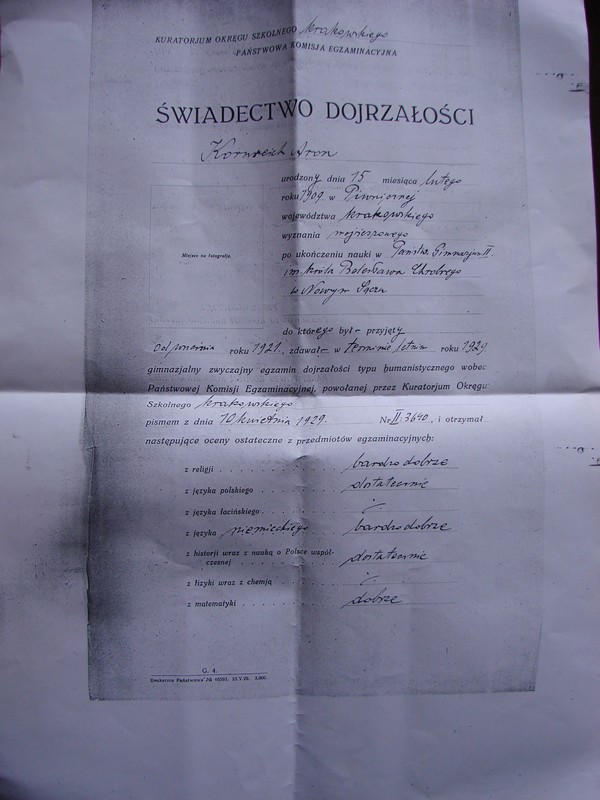 KURATORJUM OKRĘGU SZKOLNEGO Krakowskiego
PAŃSTWOWA KOMISJA EGZAMINACYJNA
ŚWIADECTWO DOJRZAŁOŚCI
Kornreich Aron
urodzony dnia 15 miesiąca lutego
roku 1909 w Piwnicznej
województwa krakowskiego
wyznania mojżeszowego
Miejsce na fotografję.
po ukończeniu nauki w Państw. Gimnazjum II.
im. Króla Bolesława Chrobrego
w Nowym Sączu
do którego był – przyjęty
od roku 1921, zdawał – w terminie letnim roku 1929
gimnazjalny zwyczajny egzamin dojrzałości typu humanistycznego wobec
Państwowej Komisji Egzaminacyjnej, powołanej przez Kuratorjum Okręgu
Szkolnego krakowskiego
pismem z dnia 10 kwietnia 1929. Nr II. 3640, i otrzymał
następujące oceny ostateczne z przedmiotów egzaminacyjnych:
z religji . . . . . . . . . . bardzo dobrze
z języka polskiego . . . . . . . . dostatecznie
z języka łacińskiego . . . . . . .
z języka niemieckiego bardzo dobrze
z historji wraz z nauką o Polsce współ-
czesnej . . . . . . . . . . dostatecznie
z fizyki wraz z chemją . . . . . .
z matematyki . . . . . . . . . dobrze
G. 4.